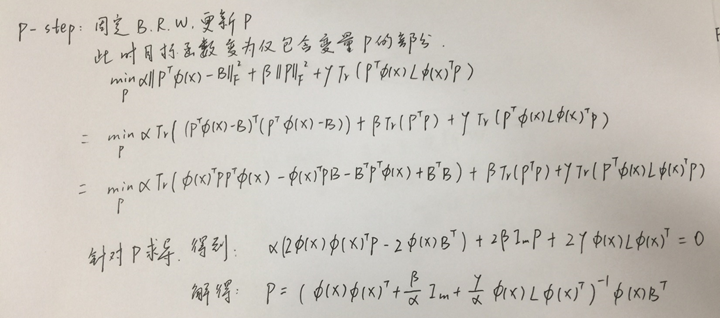 P-step: 固定 B.R.W. 更新 P
此时目标函数变为仅包含变量 P 的部分.
min_P α‖P^Tφ(x) - B‖_F^2 + β‖P‖_F^2 + γ Tr(P^Tφ(x)Lφ(x)^TP)
= min_P α Tr((P^Tφ(x)-B)^T(P^Tφ(x)-B)) + β Tr(P^TP) + γ Tr(P^Tφ(x)Lφ(x)^TP)
= min_P α Tr(φ(x)^TPP^Tφ(x) - φ(x)^TPB - B^TP^Tφ(x) + B^TB) + β Tr(P^TP) + γ Tr(P^Tφ(x)Lφ(x)^TP)
针对 P 求导, 得到: α(2φ(x)φ(x)^TP - 2φ(x)B^T) + 2βI_mP + 2γφ(x)Lφ(x)^T = 0
解得: P = (φ(x)φ(x)^T + β/α I_m + γ/α φ(x)Lφ(x)^T)^{-1} φ(x)B^T